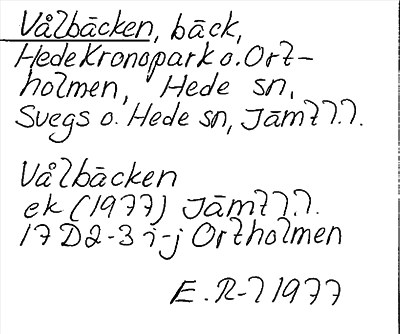 Vålbäcken, bäck,
Hede Kronopark o. Ort-
holmen, Hede sn,
Svegs o. Hede sn, Jämtl.l.
Vålbäcken
ek (1977) Jämtl.l.
17D2-3 i-j Ortholmen
E. R-l 1977